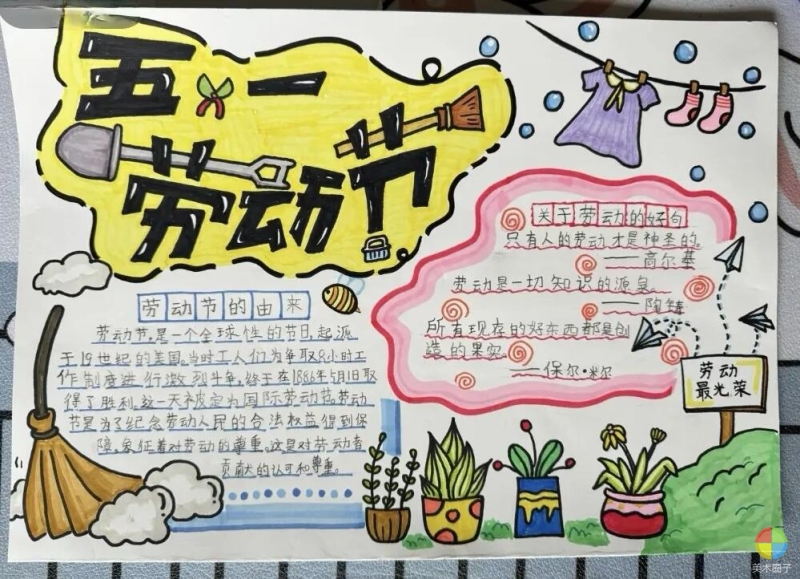 五一
劳动节
劳动节的由来
劳动节,是一个全球性的节日,起源
于19世纪的美国。当时工人们为争取8小时工
作制度进行激烈斗争。终于在1886年5月1日取
得了胜利。这一天被定为国际劳动节。劳动
节是为了纪念劳动人民的合法权益得到保
障,象征着对劳动的尊重。这是对劳动者
贡献的认可和尊重。
关于劳动的好句
只有人的劳动才是神圣的
——高尔基
劳动是一切知识的源泉
——陶铸
所有现存的好东西都是创
造的果实
——保尔·米尔
劳动
最光荣
美术圈子